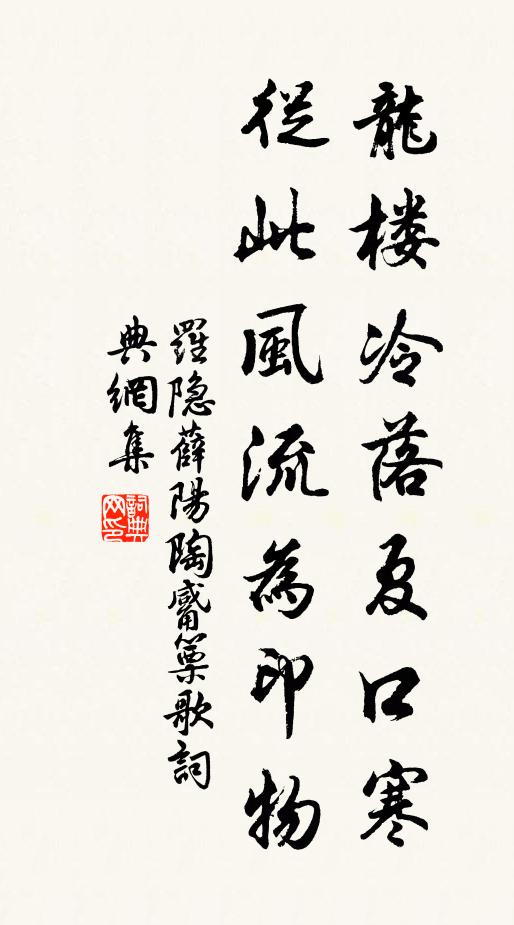 龍楼冷落夏口寒
從此風流為印物
羅隐薛陽陶觱篥歌詞
典網集
詞典
网印